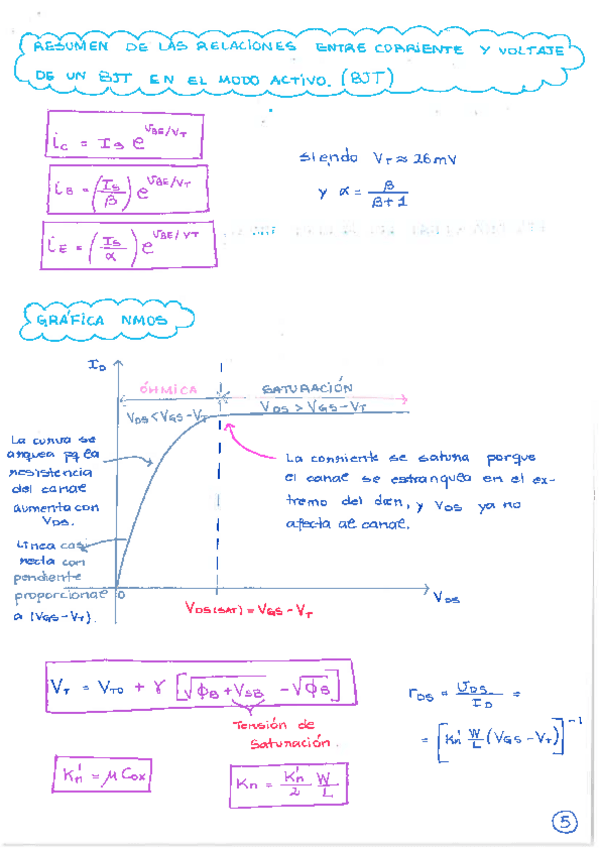 RESUMEN DE LAS RELACIONES ENTRE CORRIENTE Y VOLTAJE
DE UN BJT EN EL MODO ACTIVO. (BJT)
i_C = I_S e^{V_BE/V_T}
siendo V_T ≈ 26mV
i_B = (I_S/β) e^{V_BE/V_T}
y α = β/(β+1)
i_E = (I_S/α) e^{V_BE/V_T}
GRÁFICA NMOS
I_D
ÓHMICA
SATURACIÓN
V_DS < V_GS - V_T
V_DS > V_GS - V_T
La curva se
arquea pq la
resistencia
del canal
aumenta con
V_DS.
Línea casi
recta con
pendiente
proporcional
a (V_GS - V_T).
La corriente se satura porque
el canal se estrangula en el ex-
tremo del dren, y V_DS ya no
afecta al canal.
0
V_DS
V_DS(SAT) = V_GS - V_T
V_T = V_T0 + γ [√(φ_B + V_SB) - √φ_B]
Tensión de
Saturación.
r_DS = V_DS/I_D =
= [K'n W/L (V_GS - V_T)]^{-1}
K'n = μ Cox
Kn = K'n/2 W/L
5